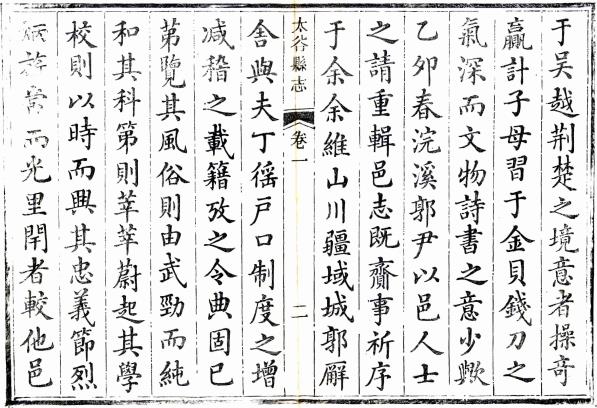 于吳越荆楚之境意者操奇
贏計子母習于金貝錢刀之
氣深而文物詩書之意少歟
乙卯春浣溪郭尹以邑人士
之請重輯邑志既齎事祈序
于余余維山川疆域城郭廨
太谷縣志 卷一 二
舍與夫丁徭戶口制度之增
减稽之載籍攷之令典固已
第覽其風俗則由武勁而純
和其科第則莘莘蔚起其學
校則以時而興其忠義節烈
炳旂常而光里閈者較他邑